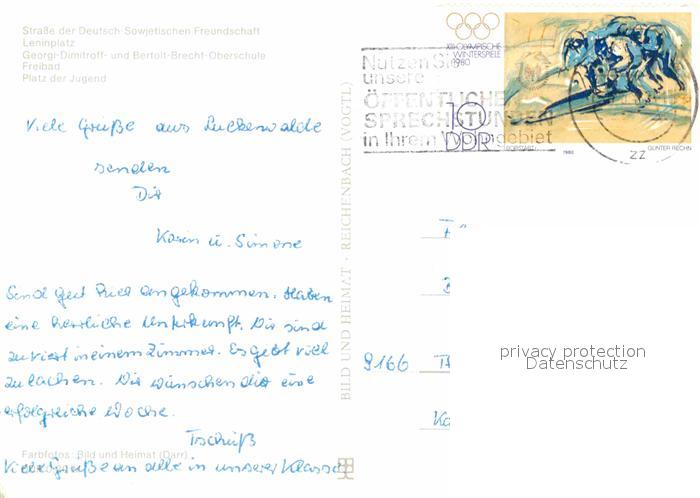 Straße der Deutsch-Sowjetischen Freundschaft
Leninplatz
Georgi-Dimitroff- und Bertolt-Brecht-Oberschule
Freibad
Platz der Jugend
Viele Grüße aus Luckenwalde
senden
Dir
Karen u. Simone
Sind gut hier angekommen. Haben
eine herrliche Unterkunft. Wir sind
zu viert in einem Zimmer. Es gibt viel
zu lachen. Wir wünschen dir eine
erfolgreiche Woche.
Tschüß
Viele Grüße an alle in unserer Klasse
Farbfotos: Bild und Heimat (Darr)
BILD UND HEIMAT · REICHENBACH (VOGTL)
XIII. OLYMPISCHE
WINTERSPIELE
1980
Nutzen Sie
unsere
ÖFFENTLICHEN
SPRECHSTUNDEN
in Ihrem Wohngebiet
10
DDR
1980
GÜNTER RECHN
ZZ
9166
privacy protection
Datenschutz